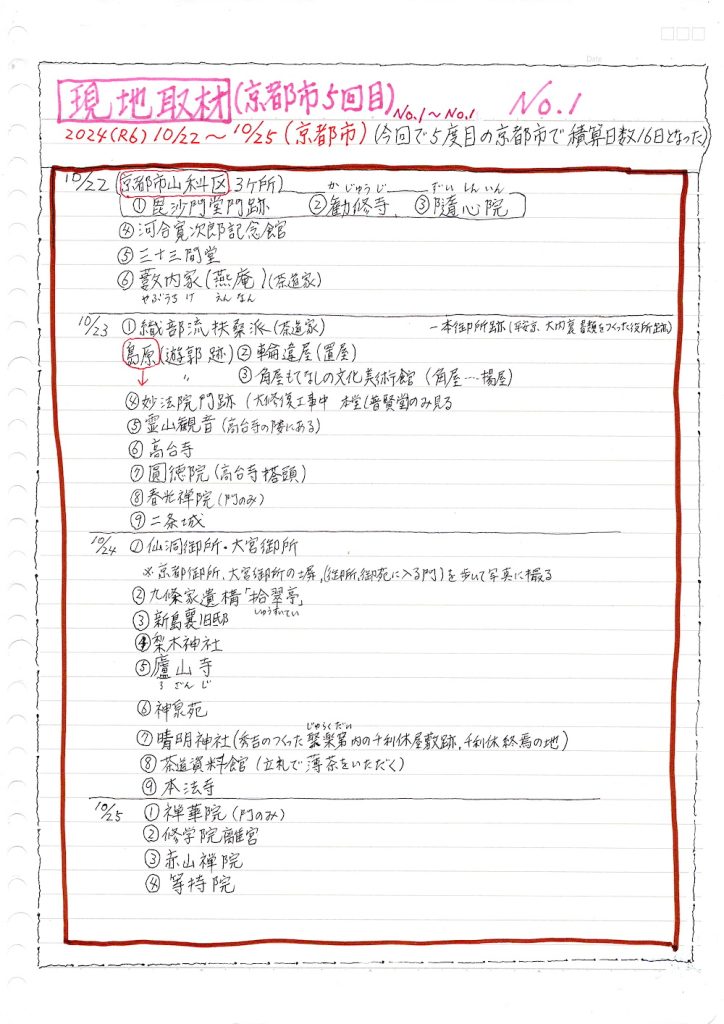 Date
現地取材(京都市5回目) No.1〜No.1 No.1
2024(R6) 10/22〜10/25 (京都市) (今回で5度目の京都市で積算日数16日となった)
10/22 (京都市山科区 3ヶ所)
かじゅうじ だいしんいん
①毘沙門堂門跡 ②勧修寺 ③隨心院
④河合寛次郎記念館
⑤三十三間堂
⑥藪内家(燕庵)(茶道家)
やぶうち け えん なん
10/23 ①織部流扶桑派(茶道家)
島原(遊郭跡)②輪違屋(置屋)
〃 ③角屋もてなしの文化美術館 (角屋…揚屋)
④妙法院門跡 (大修復工事中 本堂(普賢堂のみ見る
⑤霊山観音(高台寺の隣にある)
⑥高台寺
⑦圓徳院(高台寺塔頭)
⑧春光禅院(門のみ)
⑨二条城
10/24 ①仙洞御所・大宮御所
※京都御所、大宮御所の土塀,(御所,御苑に入る門)を歩いて写真に撮る
②九條家遺構「拾翠亭」
しゅうすいてい
③新島襄旧邸
④梨木神社
⑤廬山寺
ろ ざん じ
⑥神泉苑
じゅらくだい
⑦晴明神社(秀吉のつくった聚楽第内の千利休屋敷跡,千利休終焉の地)
⑧茶道資料館(立礼で薄茶をいただく)
⑨本法寺
10/25 ①禅華院(門のみ)
②修学院離宮
③赤山禅院
④等持院